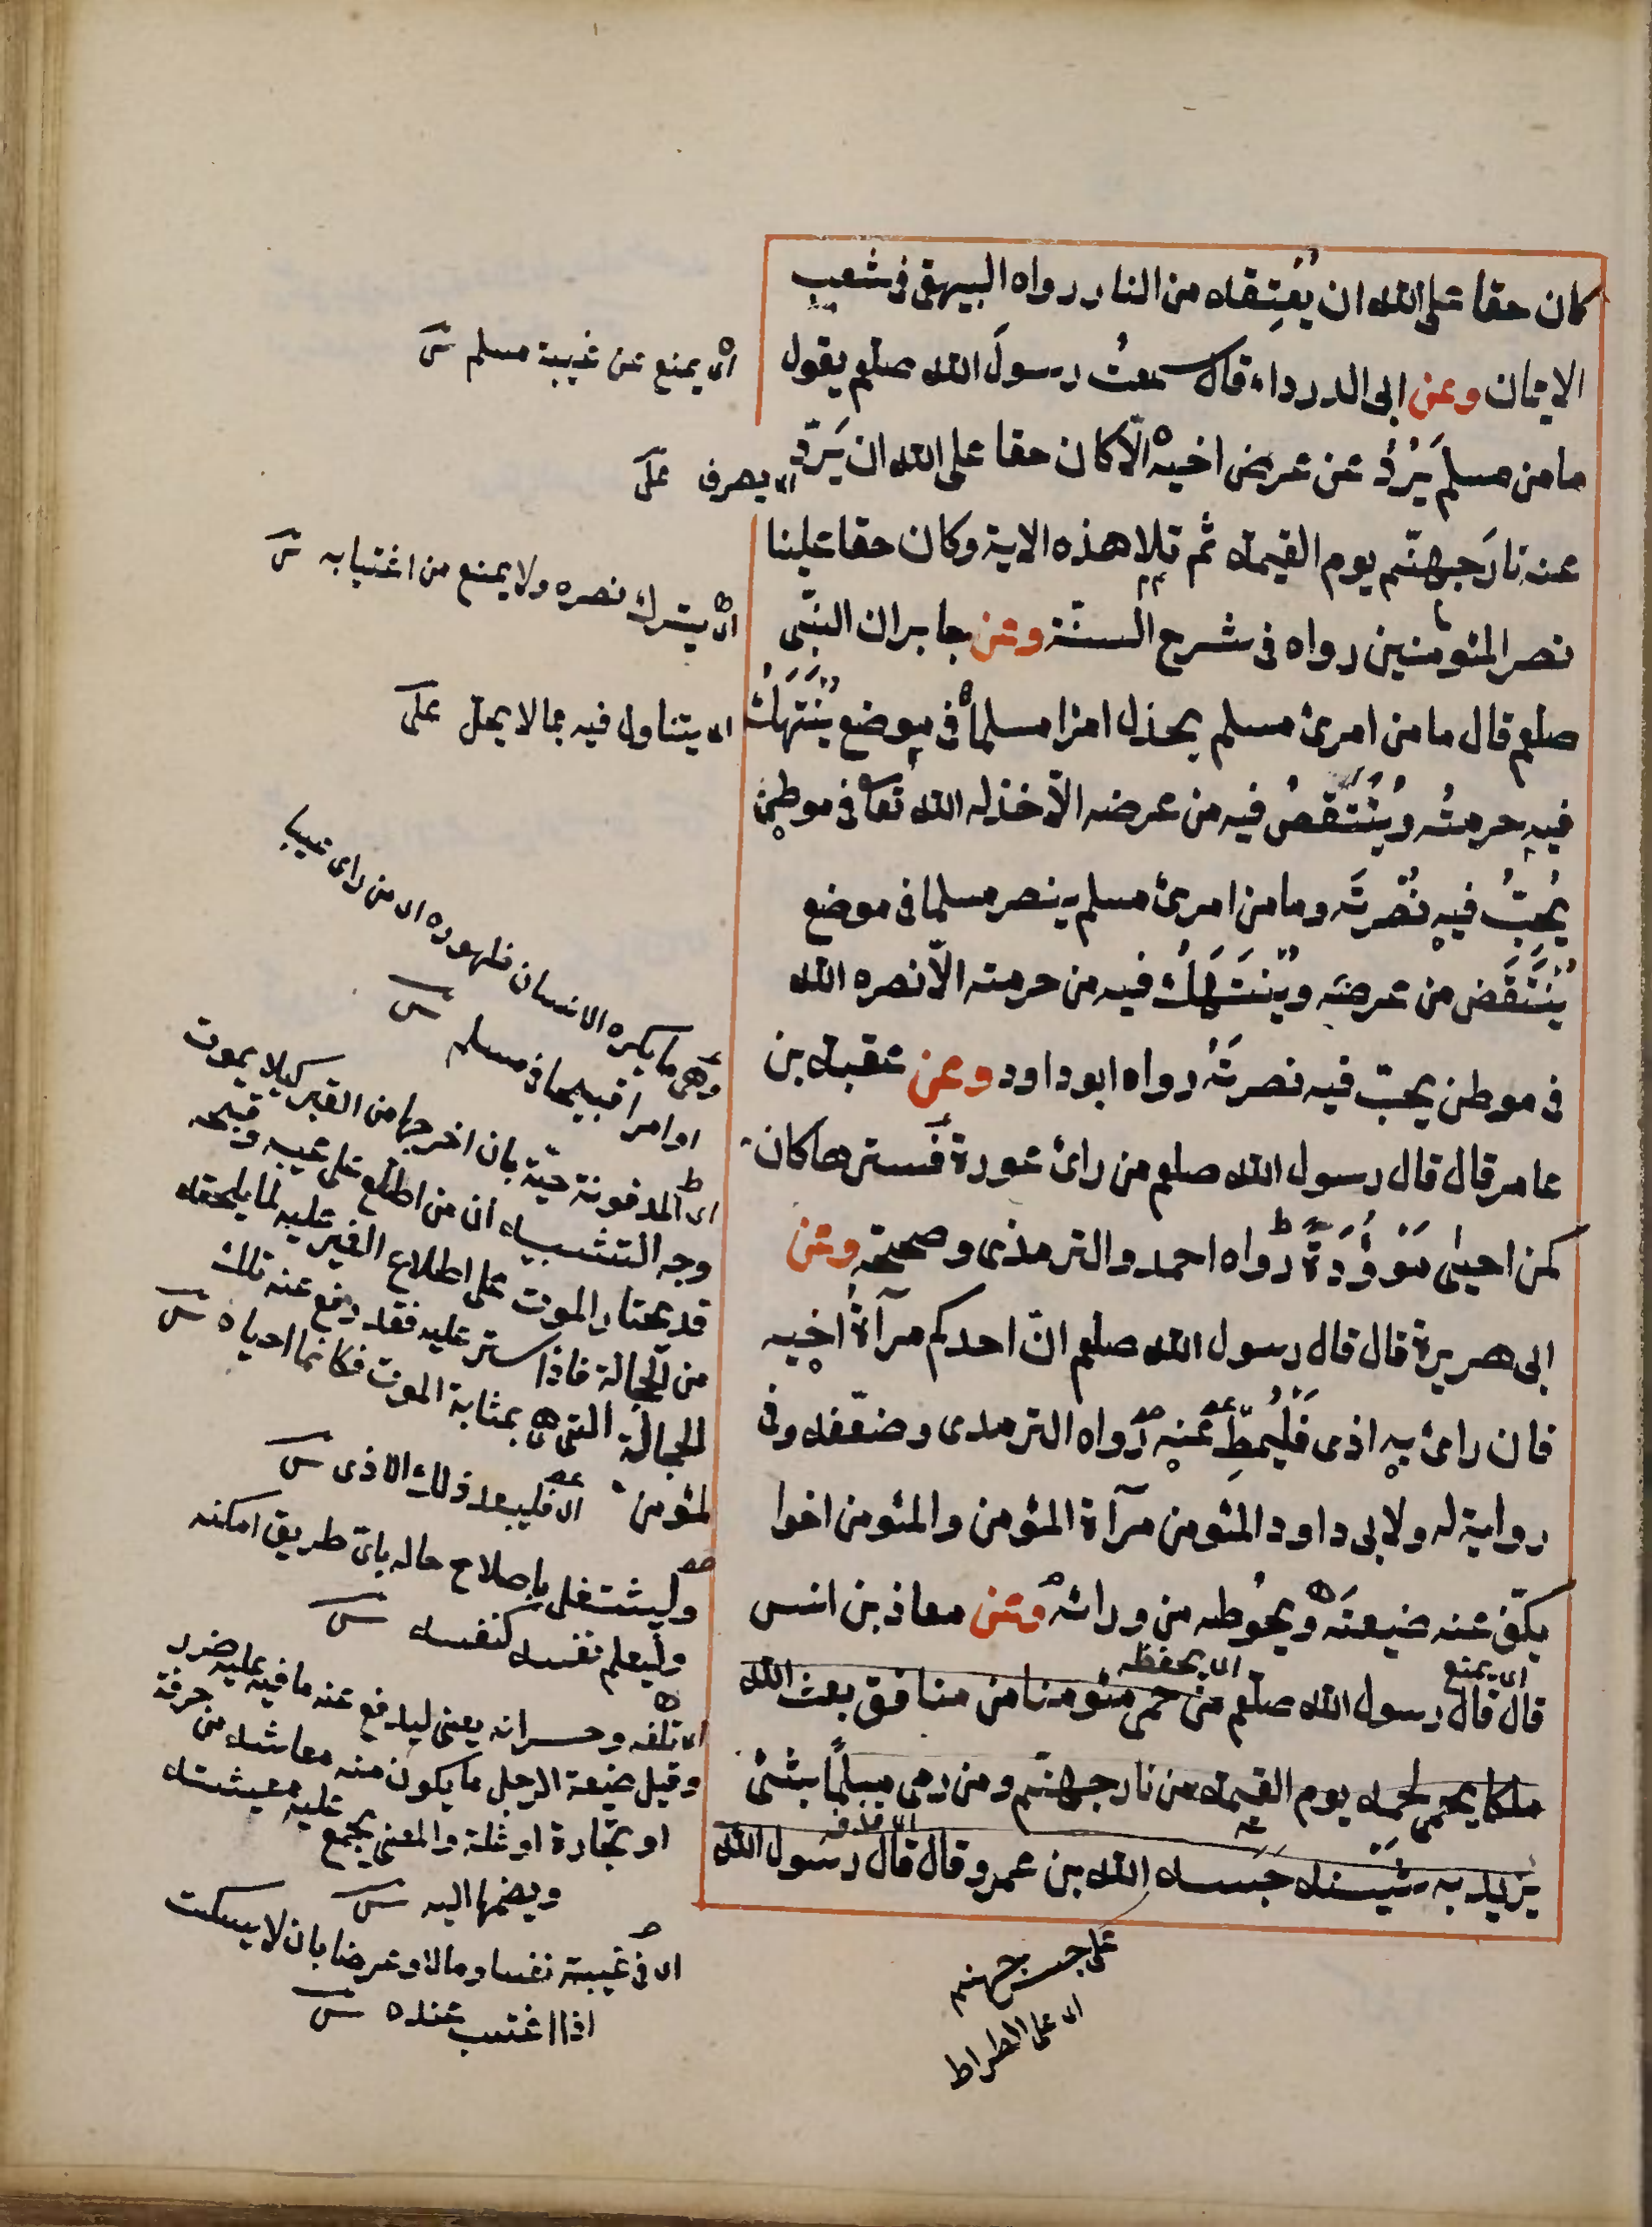 كان حقا على الله ان يُعتِقه من النار رواه البيهقى فى شعب
الايمان وعن ابى الدرداء قال سمعتُ رسولَ الله صلعم يقول
ما من مسلم يَرُدُّ عن عرض اخيه الّا كان حقا على الله ان يَرُدَّ
عنه نارَ جهنّم يوم القيمة ثم تلا هذه الاية وكان حقا علينا
نصر المئومنين رواه فى شرح السنّة وعن جابر ان النبّى
صلعم قال ما من امرئ مسلم يخذل امرا مسلما فى موضع يُنْتَهَكُ
فيه حرمتُه ويُنْتَقَصُ فيه من عرضه الّا خذله الله تعا فى موطن
يُحِبُّ فيه نُصْرتَه وما من امرئ مسلم ينصر مسلما فى موضع
يُنْتَقَض من عرضه ويُنتَهَكُ فيه من حرمته الّا نصره الله
فى موطن يحبّ فيه نصرتَه رواه ابو داود وعن عقبة بن
عامر قال قال رسول الله صلعم من رائ عورة فَسترها كان
كمن احيىٰ مَوْؤُدَةً رواه احمد والترمذى وصححه وعن
ابى هريرة قال قال رسول الله صلعم انّ احدكم مرآةُ اخيه
فان رائ به اذى فَلْيُمِطْ عنه رواه الترمدى وضعّفه وفى
رواية له ولابى داود المئومن مرآة المئومن والمئومن اخوا
يكفّ عنه ضيعتَه ويحُوطه من ورائه وعن معاذ بن انس
قال قال رسول الله صلعم من حمى مئومنا من منافق بعث الله
ملكا يحمى لحمه يوم القيمة من نار جهنّم ومن رمى مسلمًا بشئ
يريد به شَينه حبسه الله بن عمرو قال قال رسول الله
على جسر جهنم
اى على الطراط
اى يمنع
اى يحفظه
اى قذفه
اى يمنع عن غيبة مسلم
اى يصرف على
اى يترك نصره ولا يمنع من اغتيابه
اى يتناول فيه بما لا يحل على
وهى ما يكره الانسان ظهوره اى من راى عيبا
او امرا قبيحا فى مسلم
اى المدفونة حيّة بان اخرجها من القبر كيلا يموت
وجه التشبيه ان من اطلع على عيبه وقبحه
قد يختار الموت على اطلاع الغير عليه لما يلحقه
من الخجالة فاذا ستر عليه فقد دفع عنه تلك
الخجالة التى هى بمثابة الموت فكانما احياه
لمئومن اى فليبعد ذلك الاذى
وليشتغل باصلاح حاله باىّ طريق امكنه
وليعلم نفسه كنفسه
اى تلفه وخسرانه يعنى ليدفع عنه ما فيه عليه ضرر
وقيل ضيعة الرجل ما يكون منه معاشه من حرفة
او تجارة او غلة والمعنى يجمع عليه معيشته
ويضمها اليه
اى فى غيبة نفسا ومالا وعرضا بان لا يسكت
اذا اغتب عنده